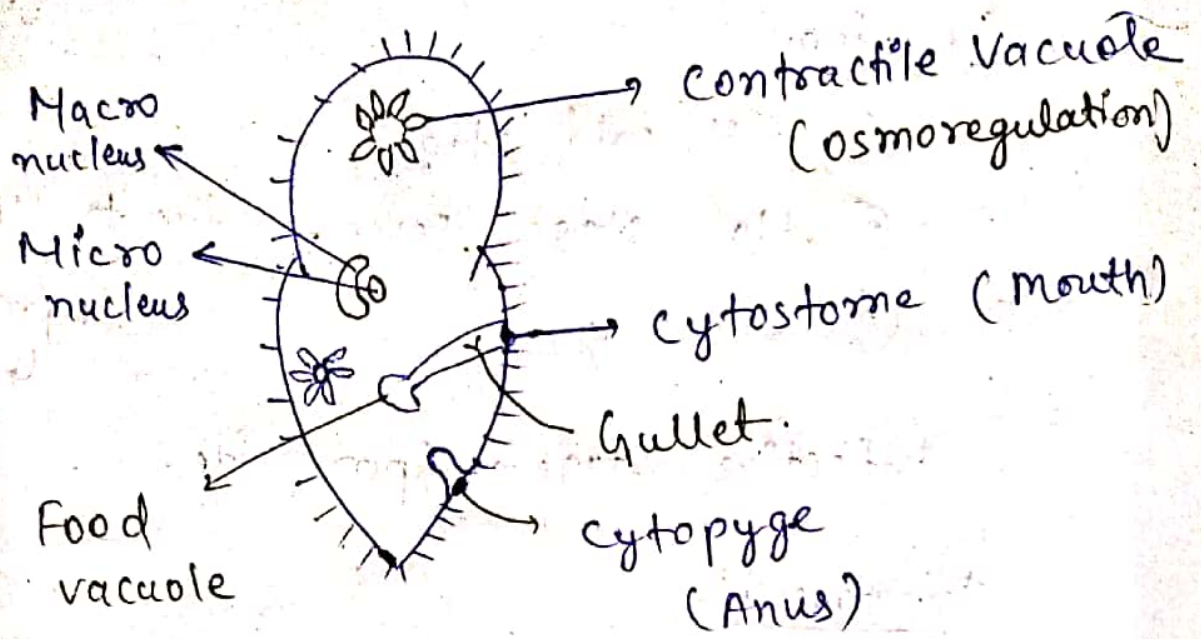 Macro
nucleus
Micro
nucleus
Food
vacuole
Contractile Vacuole
(osmoregulation)
Cytostome (Mouth)
Gullet.
Cytopyge
(Anus)